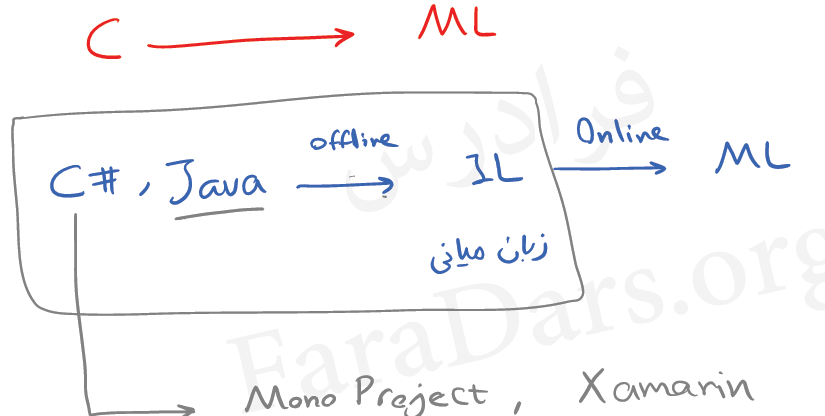 C → ML
C#, Java offline → IL Online → ML
زبان میانی
Mono Project, Xamarin
فرادرس
FaraDars.org